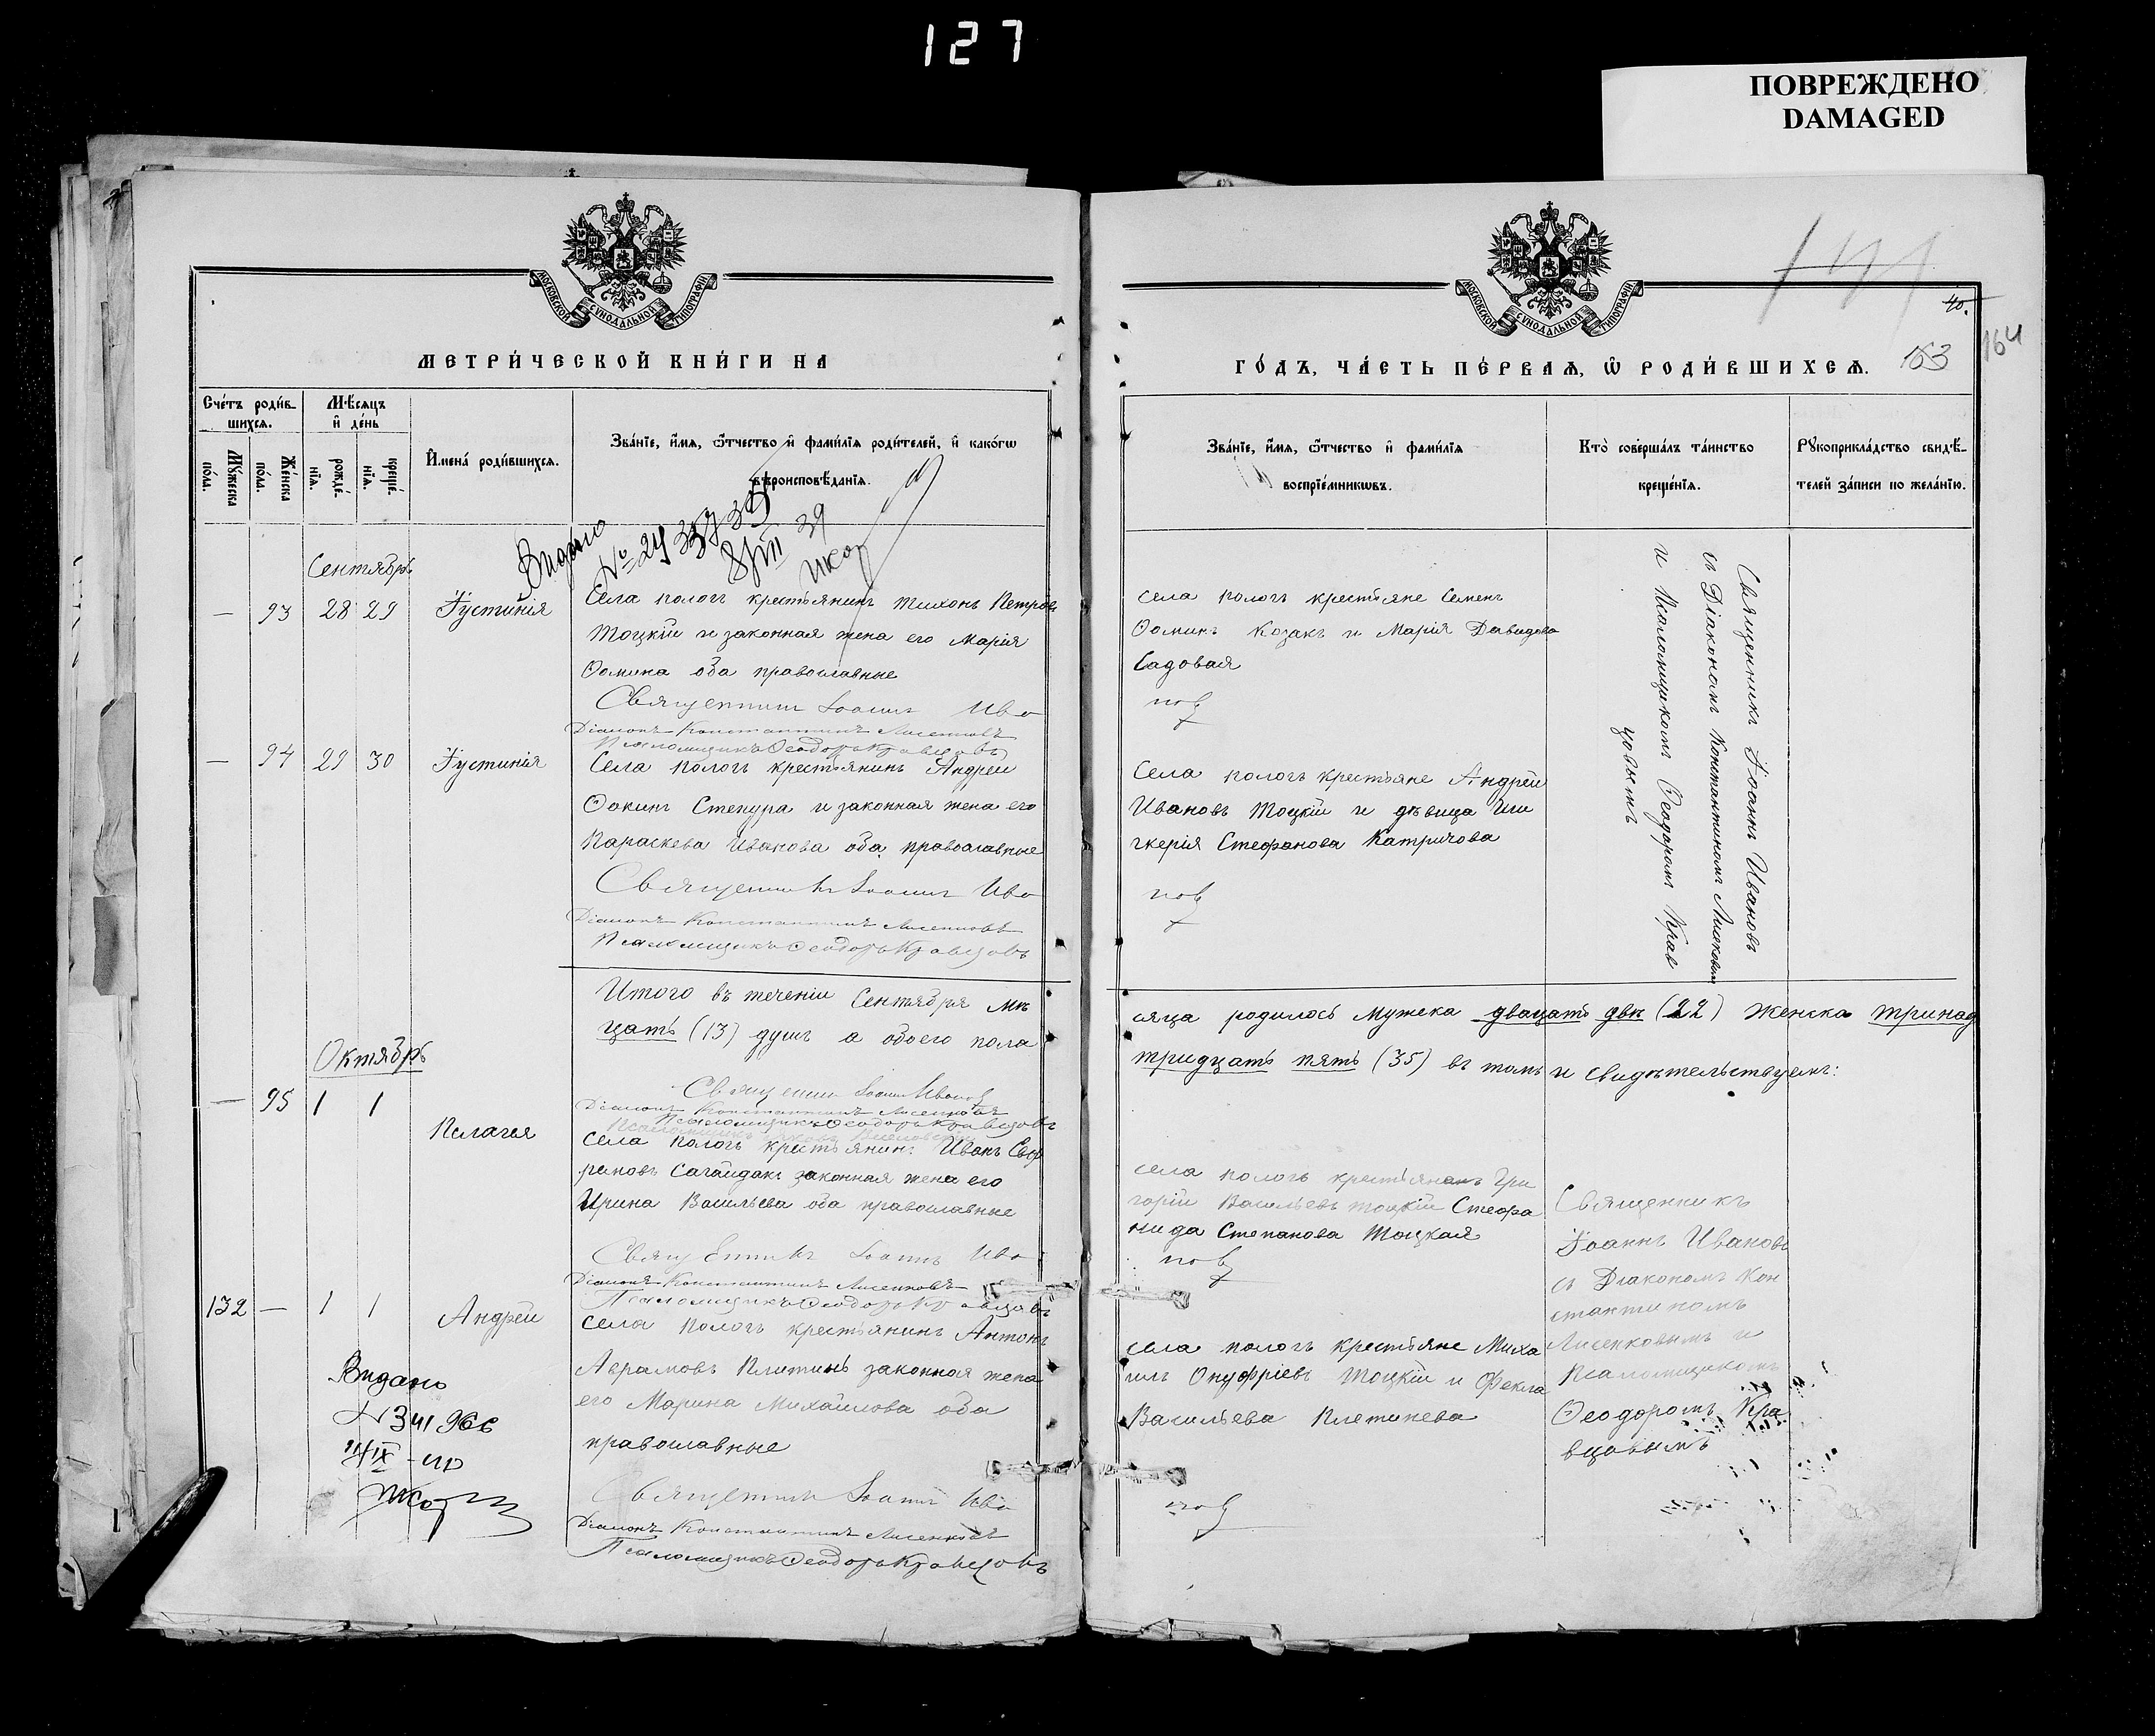 127
ПОВРЕЖДЕНО
DAMAGED
МОСКОВСКОЙ СѴНОДАЛЬНОЙ ТИПОГРАФІИ
МЕТРИ́ЧЕСКОЙ КНИ́ГИ НА
Сче́тъ роди́в-
шихся.
Мѣ́сяцъ
и҆ де́нь
Му́жеска
по́ла.
Же́нска
по́ла.
рожде́-
нїя.
креще́-
нїя.
И҆мена́ роди́вшихся.
Зва́нїе, и҆́мя, ѻ҆́тчество и҆ фами́лїя роди́телей, и҆ како́гѡ
вѣроисповѣ́данїя.
Видано
8/VII 39
Сентябрь
— 93 28 29 Іустинія
Села пологъ крестьянинъ Тихонъ Петровъ
Тоцкій и законная жена его Марія
Ѳомина оба православные
Священникъ Іоаннъ Ива
Діаконъ Константинъ Лисенковъ
Псаломщикъ Ѳеодоръ Кравцовъ
— 94 29 30 Іустинія
Села пологъ крестьянинъ Андрей
Ѳокинъ Стекура и законная жена его
Параскева Иванова оба православные
Священникъ Іоаннъ Ива
Діаконъ Константинъ Лисенковъ
Псаломщикъ Ѳеодоръ Кравцовъ
Итого въ теченіи Сентября мѣ
цать (13) душъ а обоего пола
Октябрь
Священникъ Іоаннъ Ивановъ
Діаконъ Константинъ Лисенковъ
Псаломщикъ Ѳеодоръ Кравцовъ
— 95 1 1 Пелагея
села пологъ крестьянинъ Иванъ Евф
реновъ Сагайдакъ законная жена его
Ирина Васильева оба православные
Священникъ Іоаннъ Ива
Діаконъ Константинъ Лисенковъ
Псаломщикъ Ѳеодоръ Кравцовъ
132 — 1 1 Андрей
села пологъ крестьянинъ Антонъ
Аврамовъ Плетинь законная жена
его Марина Михайлова оба
православные
Видано
Священникъ Іоаннъ Ива
Діаконъ Константинъ Лисенковъ
Псаломщикъ Ѳеодоръ Кравцовъ
МОСКОВСКОЙ СѴНОДАЛЬНОЙ ТИПОГРАФІИ
40.
ГО́ДЪ, ЧА́СТЬ ПЕ́РВАЯ, Ѡ҆ РОДИ́ВШИХСЯ.
163
164
Зва́нїе, и҆́мя, ѻ҆́тчество и҆ фами́лїя
воспрїе́мникѡвъ.
Кто̀ соверша́лъ та́инство
креще́нїя.
Рꙋкоприкла́дство свидѣ́-
телей за́писи по жела́нїю.
села пологъ крестьяне Семенъ
Ѳоминъ Козакъ и Марія Давидова
Садовая
Священникъ Іоаннъ Ивановъ
съ Діакономъ Константиномъ Лисенковым
и Псаломщикомъ Ѳеодоромъ Крав
цовымъ
Села пологъ крестьяне Андрей
Ивановъ Тоцкій и дѣвица Гли
керія Стефанова Катричова
сяца родилось мужска двацать двѣ (22) Женска тринад
тридцать пять (35) въ томъ и свидѣтельствуемъ:
села пологъ крестьянинъ Гри
горій Васильевъ тоцкій Стефа
нида Степанова Тоцкая
Священникъ
Іоаннъ Ивановъ
съ Діакономъ Кон
стантиномъ
Лисенковымъ и
Псаломщикомъ
Ѳеодоромъ Кра
вцовымъ
села пологъ крестьяне Миха
илъ Онуфріевъ Тоцкій и Фекла
Васильева Плетинева